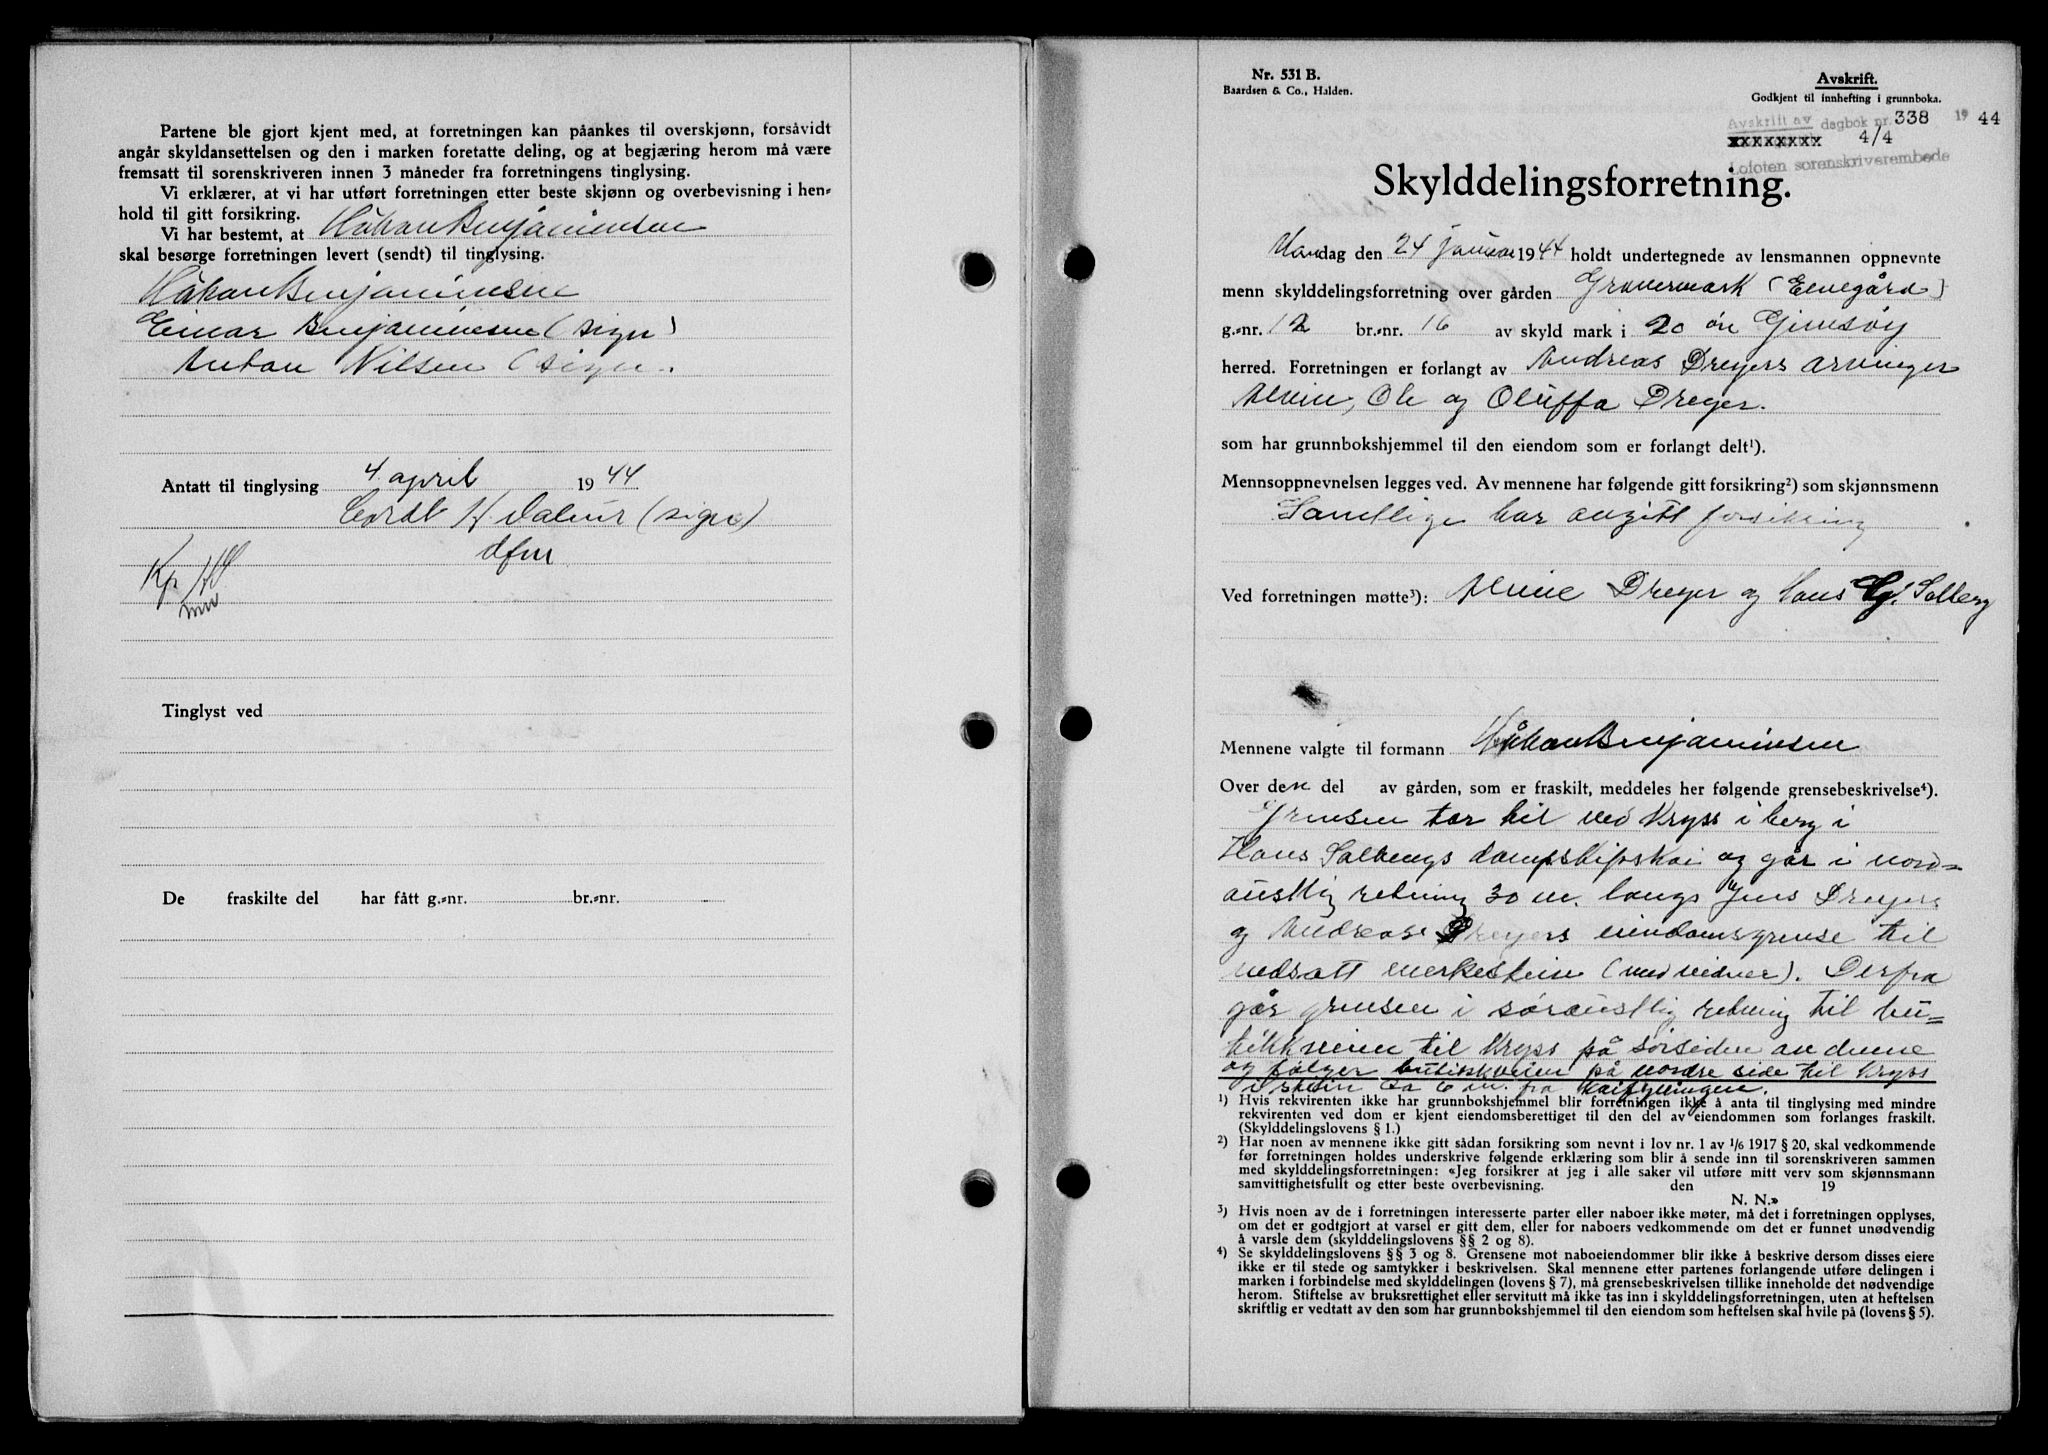 Partene ble gjort kjent med, at forretningen kan påankes til overskjønn, forsåvidt
angår skyldansettelsen og den i marken foretatte deling, og at begjæring herom må være
fremsatt til sorenskriveren innen 3 måneder fra forretningens tinglysing.
Vi erklærer, at vi har utført forretningen etter beste skjønn og overbevisning i hen-
hold til gitt forsikring.
Vi har bestemt, at Håkon Benjaminsen
skal besørge forretningen levert (sendt) til tinglysing.
Håkon Benjaminsen
Einar Benjaminsen (sign)
Anton Nilsen (sign.
Antatt til tinglysing 4 april 1944
Cordt H. (sign)
dfm
Kp
Tinglyst ved
De fraskilte del har fått g.-nr. br.-nr.
Nr. 531 B.
Baardsen & Co., Halden.
Avskrift.
Godkjent til innhefting i grunnboka.
Avskrift av dagbok nr. 338 1944
xxxxxxxx 4/4
Lofoten sorenskriverembede
Skylddelingsforretning.
Mandag den 24 januar 1944 holdt undertegnede av lensmannen oppnevnte
menn skylddelingsforretning over gården (Einegård)
g.-nr. 12 br.-nr. 16 av skyld mark i 20 øre Gimsøy
herred. Forretningen er forlangt av Andreas Dreyers arvinger
Alvine, Ole og Oluffa Dreyer.
som har grunnbokshjemmel til den eiendom som er forlangt delt¹).
Mennsoppnevnelsen legges ved. Av mennene har følgende gitt forsikring²) som skjønnsmenn
Samtlige har avgitt forsikring
Ved forretningen møtte³): Alvine Dreyer og Hans G. Solberg
Mennene valgte til formann Håkon Benjaminsen
Over den del av gården, som er fraskilt, meddeles her følgende grensebeskrivelse⁴).
Grensen tar til ved kryss i berg i
Hans Solbergs dampskipskai og går i nord-
austlig retning 30 m. langs Jens Dreyers
og Andreas Dreyers eiendomsgrense til
nedsatt merkestein (med vidner). Derfra
går grensen i søraustlig retning til bu-
tikkveien til kryss på sørsiden av denne
og følger butikkveien på nordre side til kryss
i stein ca 6 m. fra kaifyllingen.
¹) Hvis rekvirenten ikke har grunnbokshjemmel blir forretningen ikke å anta til tinglysing med mindre
rekvirenten ved dom er kjent eiendomsberettiget til den del av eiendommen som forlanges fraskilt.
(Skylddelingslovens § 1.)
²) Har noen av mennene ikke gitt sådan forsikring som nevnt i lov nr. 1 av 1/6 1917 § 20, skal vedkommende
før forretningen holdes underskrive følgende erklæring som blir å sende inn til sorenskriveren sammen
med skylddelingsforretningen: «Jeg forsikrer at jeg i alle saker vil utføre mitt verv som skjønnsmann
samvittighetsfullt og etter beste overbevisning. den 19
N. N.»
³) Hvis noen av de i forretningen interesserte parter eller naboer ikke møter, må det i forretningen opplyses,
om det er godtgjort at varsel er gitt dem, eller for naboers vedkommende om det er funnet unødvendig
å varsle dem (skylddelingslovens §§ 2 og 8).
⁴) Se skylddelingslovens §§ 3 og 8. Grensene mot naboeiendommer blir ikke å beskrive dersom disses eiere
ikke er til stede og samtykker i beskrivelsen. Skal mennene etter partenes forlangende utføre delingen i
marken i forbindelse med skylddelingen (lovens § 7), må grensebeskrivelsen tillike inneholde det nødvendige
herom. Stiftelse av bruksrettighet eller servitutt må ikke tas inn i skylddelingsforretningen, uten at heftelsen
skriftlig er vedtatt av den som har grunnbokshjemmel til den eiendom som heftelsen skal hvile på (lovens § 5).